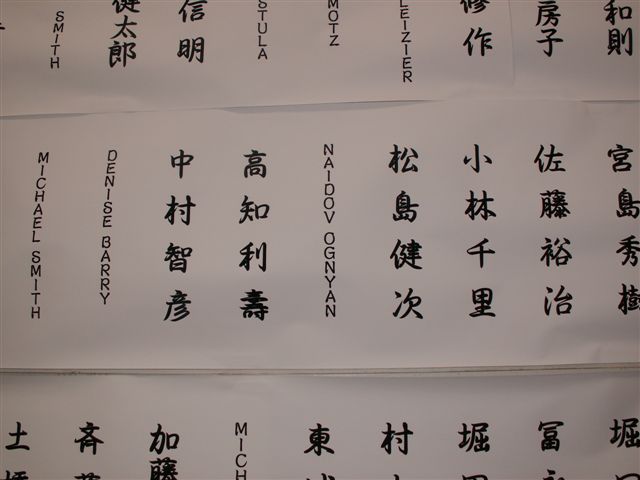 和則
房子
修作
LEIZIER
MOTZ
STULA
信明
健太郎
SMITH
宮島秀樹
佐藤裕治
小林千里
松島健次
NAIDOV OGNYAN
高知利壽
中村智彦
DENISE BARRY
MICHAEL SMITH
堀
冨
堀
村
東
MICH
加藤
斉
土